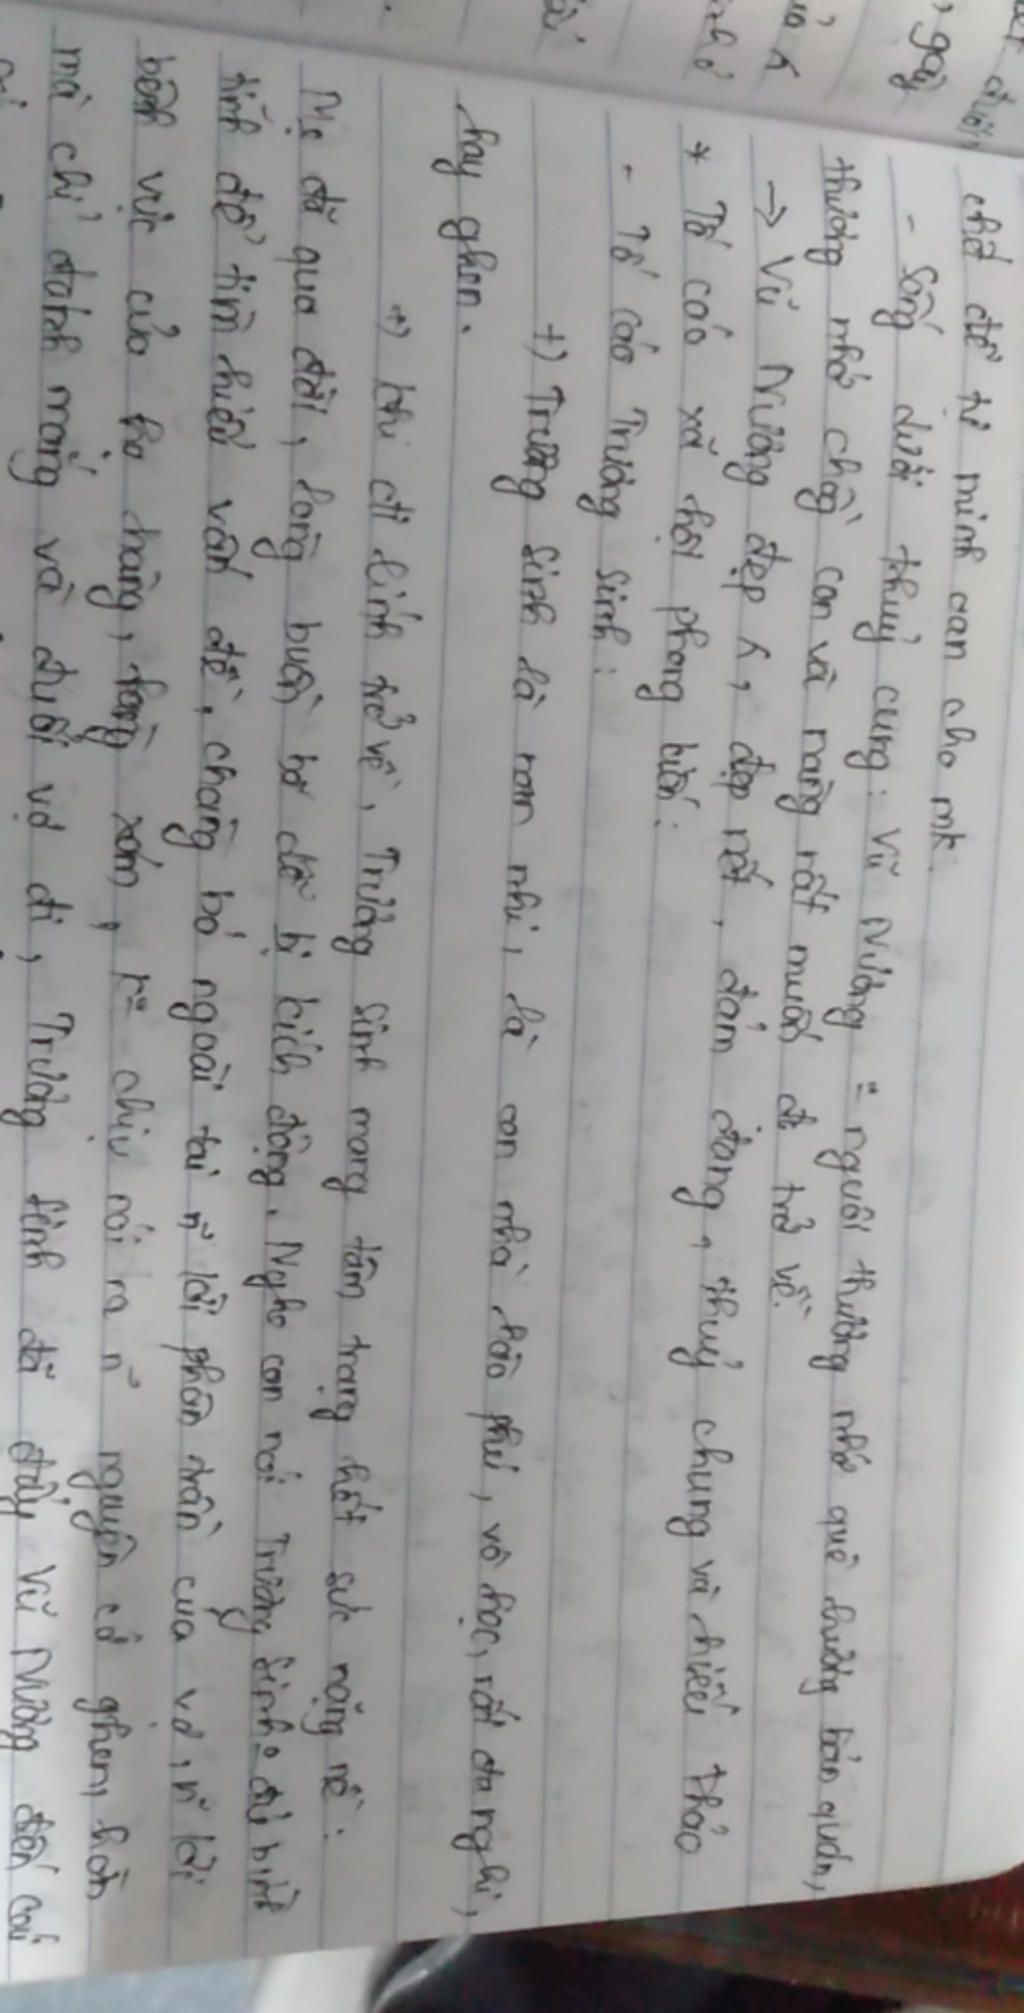 chết để tự minh oan cho mk.
- Sống dưới thuỷ cung: Vũ Nương = người thương nhớ quê hương bản quán,
thương nhớ chồng con và nàng rất muốn đc trở về.
→ Vũ Nương đẹp ng, đẹp nết, đảm đang, thuỷ chung và hiếu thảo
* Tố cáo xã hội phong kiến:
- Tố cáo Trương Sinh:
+) Trương Sinh là nam nhi, là con nhà hào phú, vô học, rất đa nghi,
hay ghen.
+) khi đi lính trở về, Trương Sinh mang tâm trạng hết sức nặng nề:
Mẹ đã qua đời, lòng buồn bã dễ bị kích động. Nghe con nói Trương Sinh đủ bình
tĩnh để tìm hiểu vấn đề, chàng bỏ ngoài tai n~ lời phân trần của vợ, n~ lời
bênh vực của họ hàng, làng xóm, k chịu nói ra n~ nguyên cớ ghen, hơn
mà chỉ đánh mắng và đuổi vợ đi, Trương Sinh đã đẩy Vũ Nương đến cái